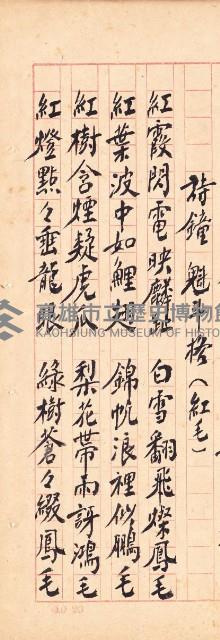 詩鐘 魁斗格（紅毛）
紅霞閃電映麟 白雪翻飛燦鳳毛
紅葉波中如鯉 錦帆浪裡似鵬毛
紅樹含煙疑虎 梨花帶雨訝鴻毛
紅燈點々垂龍 綠樹蒼々綴鳳毛
高雄市立歷史博物館
KAOHSIUNG MUSEUM OF HISTO
10 20